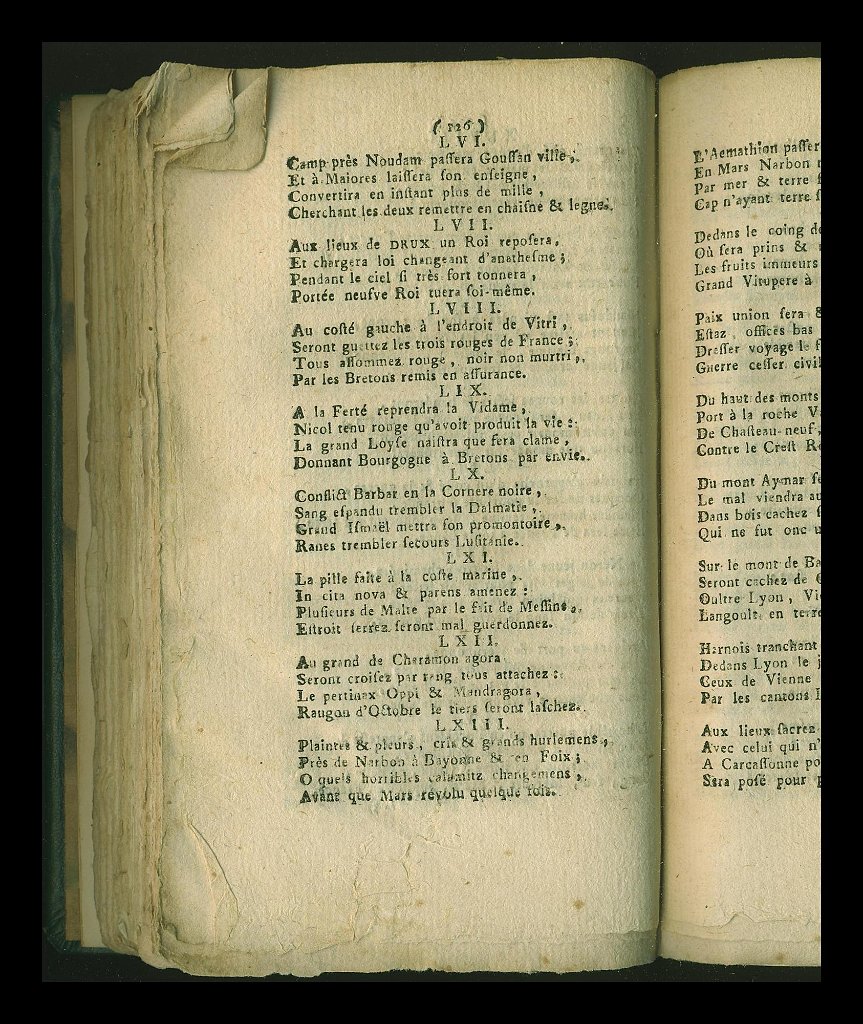 ( 126 )
LVI.
Camp près Noudam paſſera Gouſſan ville,
Et à Maiores laiſſera ſon enſeigne,
Convertira en inſtant plus de mille,
Cherchant les deux remettre en chaiſne & legne.
LVII.
Aux lieux de DRUX un Roi repoſera,
Et chargera loi changeant d'anatheſme;
Pendant le ciel ſi très fort tonnera,
Portée neufve Roi tuera ſoi-même.
LVIII.
Au coſté gauche à l'endroit de Vitri,
Seront guettez les trois rouges de France;
Tous aſſommez rouge, noir non murtri,
Par les Bretons remis en aſſurance.
LIX.
A la Ferté reprendra la Vidame,
Nicol tenu rouge qu'avoit produit la vie:
La grand Loyſe naiſtra que fera clame,
Donnant Bourgogne à Bretons par envie.
LX.
Conflict Barbar en la Cornere noire,
Sang eſpandu trembler la Dalmatie,
Grand Iſmaël mettra ſon promontoire,
Ranes trembler ſecours Luſitanie.
LXI.
La pille faite à la coſte marine,
In cita nova & parens amenez:
Pluſieurs de Malte par le fait de Meſſine,
Eſtroit ſerrez ſeront mal guerdonnez.
LXII.
Au grand de Cheramon agora
Seront croiſez par rang tous attachez:
Le pertinax Oppi & Mandragora,
Raugon d'Octobre le tiers ſeront laſchez.
LXIII.
Plaintes & pleurs, cris & grands hurlemens,
Près de Narbon à Bayonne & en Foix;
O quels horribles calamitz changemens,
Avant que Mars révolu quelque fois.
L'Aemathion paſſer
En Mars Narbon
Par mer & terre
Cap n'ayant terre
Dedans le coing de
Où ſera prins &
Les fruits immeurs
Grand Vitupere à
Paix union ſera &
Eſtaz, offices bas
Dreſſer voyage le
Guerre ceſſer civil
Du haut des monts
Port à la roche V
De Chaſteau-neuf,
Contre le Creſt R
Du mont Aymar ſe
Le mal viendra au
Dans bois cachez
Qui ne fut onc
Sur le mont de Ba
Seront cachez de
Oultre Lyon, Vi
Langoult en terre
Harnois tranchant
Dedans Lyon le
Ceux de Vienne
Par les cantons
Aux lieux ſacrez
Avec celui qui n'
A Carcaſſonne po
Sera poſé pour